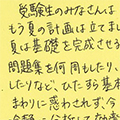 受験生のみなさんは
もう夏の計画は立てまし
夏は基礎を完成させる
問題集を何周もしたり、
したりなど、ひたすら基本
まわりに惑わされず、今